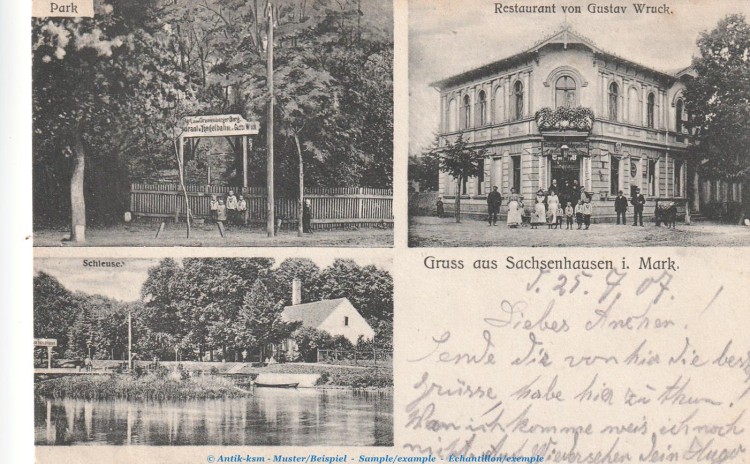 Park
Restaurant von Gustav Wruck.
Oranienburger Berg.
Schleuse.
Gruss aus Sachsenhausen i. Mark.
S. 25. 7. 07.
Liebes Anchen!
Sende dir von hier die best
grüsse, habe hir zu thun.
Wan ich komme weis ich noch
nicht. Auf Wiedersehen Dein Hugo
© Antik-ksm - Muster/Beispiel - Sample/example - Echantillon/exemple